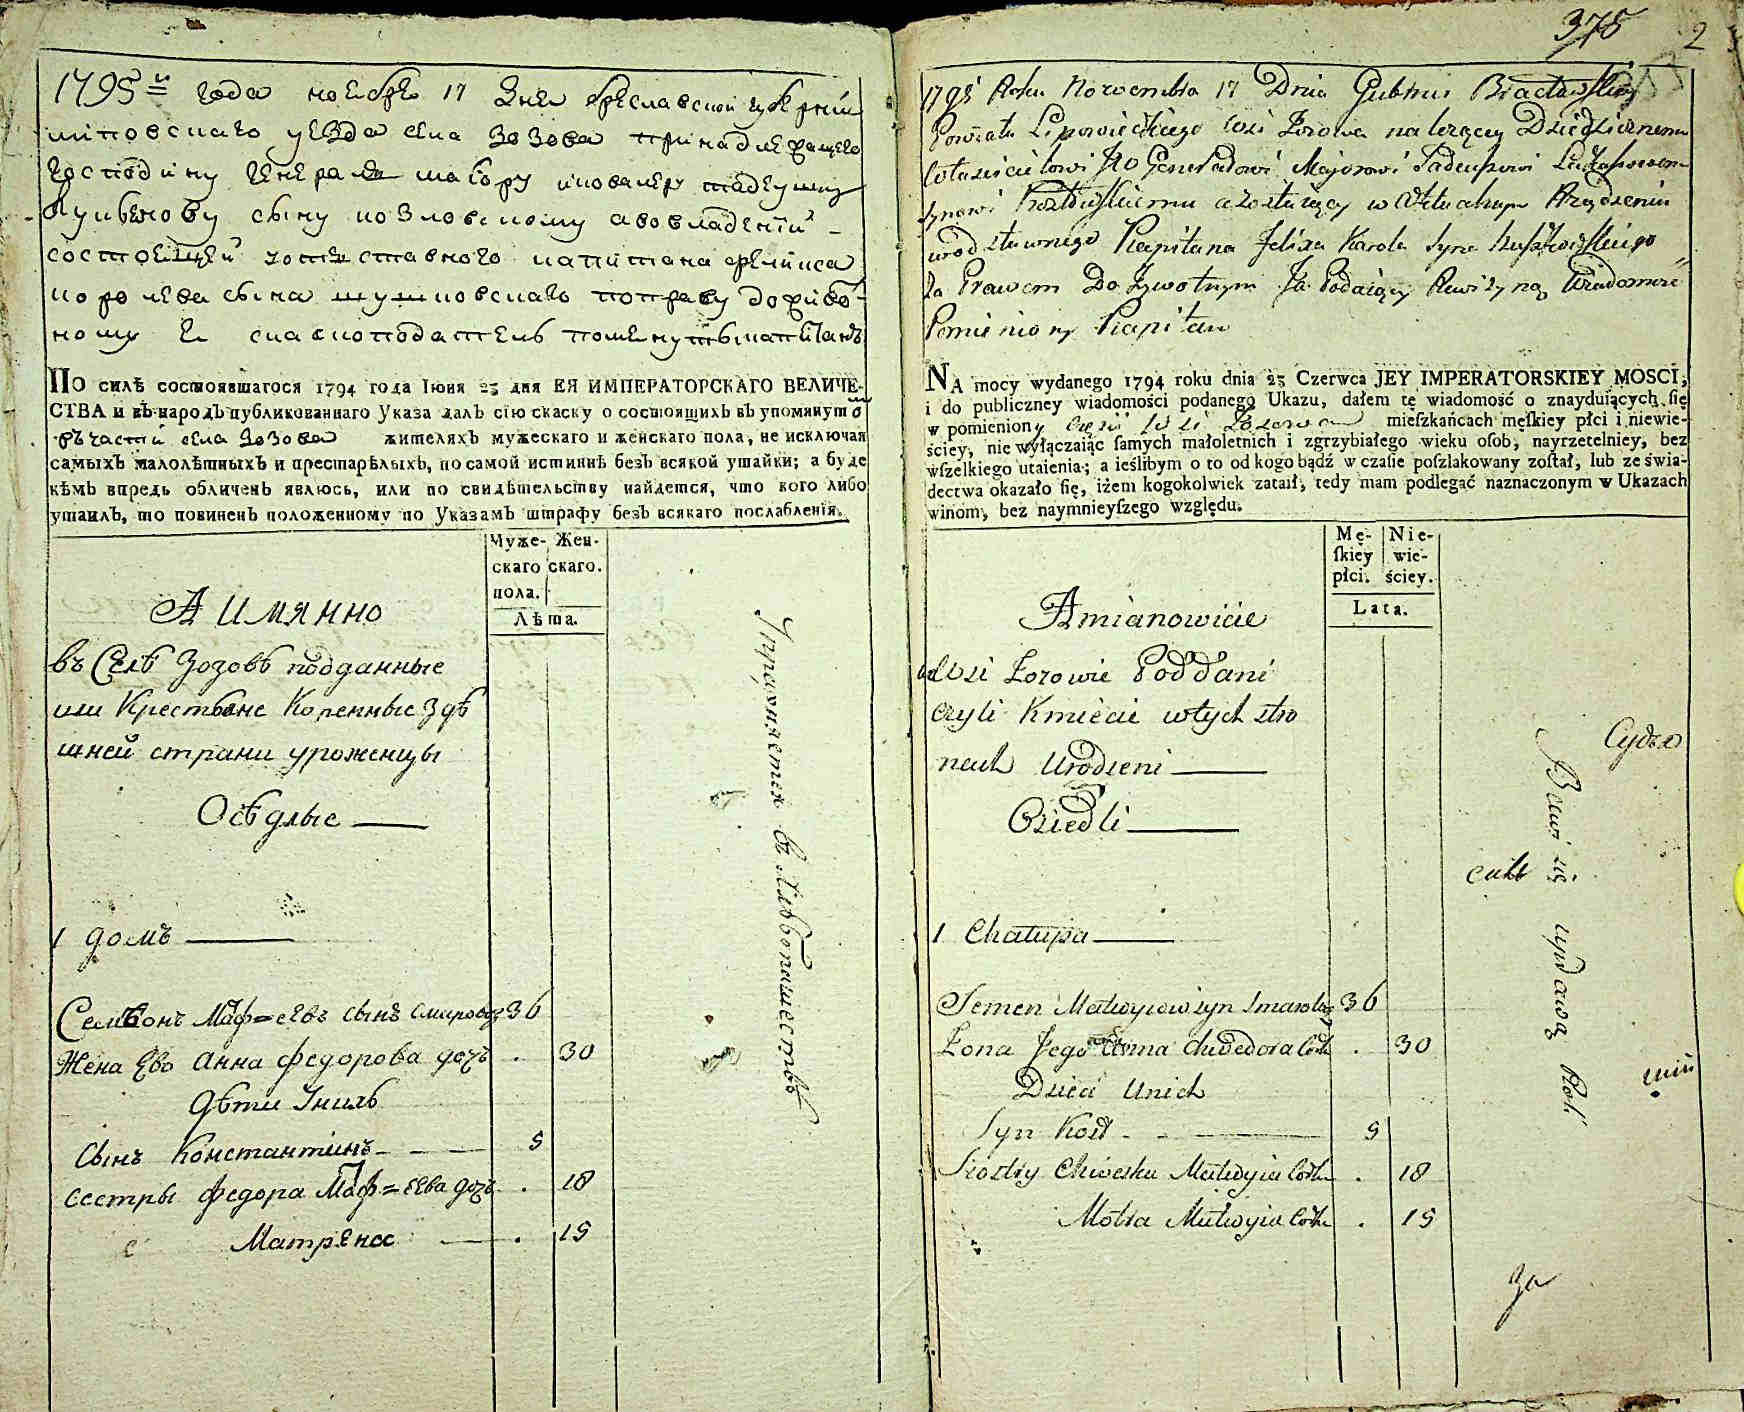 375
2
1795 года ноембра 17 дня браславской губерніи
уезда села Зозова принадлежащего
господину генералъ маіору кавалеру тадеушу
сыну козловскому а во владеніи
состоящей капитана феликса
сына по праву
ному
По силѣ состоявшагося 1794 года Іюня 23 дня ЕЯ ИМПЕРАТОРСКАГО ВЕЛИЧЕ-
СТВА и въ народъ публикованнаго Указа далъ сію скаску о состоящихъ въ упомянутой
въ части села Зозова жителяхъ мужескаго и женскаго пола, не исключая
самыхъ малолѣтныхъ и престарѣлыхъ, по самой истиннѣ безъ всякой утайки; а буде
кѣмъ впредь обличенъ явлюсь, или по свидѣтельству найдется, что кого либо
утаилъ, то повиненъ положенному по Указамъ штрафу безъ всякаго послабленія.
Муже- Жен-
скаго скаго.
пола.
Лѣта.
А имянно
въ Селѣ Зозовѣ подданные
или Крестьяне Коренные здѣ
шней страни уроженцы
Осѣдлые
1 домъ
Семіонъ Матфеевъ сынъ 36
Жена Ево Анна Федорова дочь . 30
Дѣти Ихъ
Сынъ Константинъ 5
сестры Федора Матфеева дочь . 18
Матрена . 15
Упражняется в хлѣбопашествѣ
1795 Roku Nowembra 17 Dnia Gubernii Bracławskiey
Powiatu Lipowieckiego wsi Zozowa należącey Dziedzicznemu
włascicielowi Jo Generałowi Majorowi Tadeuszowi
synowi Kozłowskiemu a zostaiącey w Aktualnym Rządzeniu
Kapitana Felixa Karola syna
Za Prawem Dożywotnym Ja Podaiący Rewizyną Wiadomość
Pomieniony Kapitan
NA mocy wydanego 1794 roku dnia 23 Czerwca JEY IMPERATORSKIEY MOSCI,
i do publiczney wiadomości podanego Ukazu, dałem tę wiadomość o znayduiących się
w pomieniony Częsci wsi Zozowa mieſzkańcach męſkiey płci i niewie-
ściey, nie wyłączaiąc ſamych małoletnich i zgrzybiałego wieku oſob, nayrzetelniey, bez
wſzelkiego utaienia; a ieślibym o to od kogo bądź w czaſie poſzlakowany zoſtał, lub ze świa-
dectwa okazało ſię, iżem kogokolwiek zataił, tedy mam podlegać naznaczonym w Ukazach
winom, bez naymnieyſzego względu.
Mę- Nie-
ſkiey wie-
płci. ściey.
Lata.
Amianowicie
wsi Zozowie Poddani
czyli Kmiecie w tych stro
nach Urodzeni
Osiedli
1 Chałupa
Semen Matwyiow syn 36
Zona Jego Anna Chwedora Corka . 30
Dzieci Unich
Syn Kost 5
Siostry Chweska Matwyia Corka . 18
Motra Matwyia Corka . 15
Bawi się uprawą Roli
Судья
за